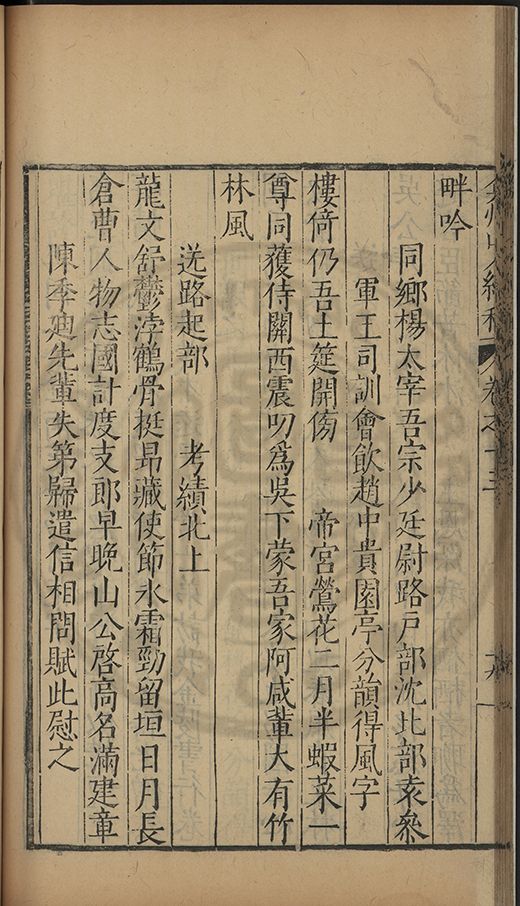 卷之十三
畔吟
同鄉楊太宰吾宗少廷尉路戶部沈比部袁參
軍王司訓會飲趙中貴園亭分韻得風字
樓倚仍吾土筵開傍　帝宮鶯花二月半蝦菜一
尊同獲侍關西震叨爲吳下蒙吾家阿咸輩大有竹
林風
送路起部　考績北上
龍文舒鬱浡鶴骨挺昂藏使節氷霜勁留垣日月長
倉曹人物志國計度支郎早晚山公啓高名滿建章
陳季廸先輩失第歸遣信相問賦此慰之